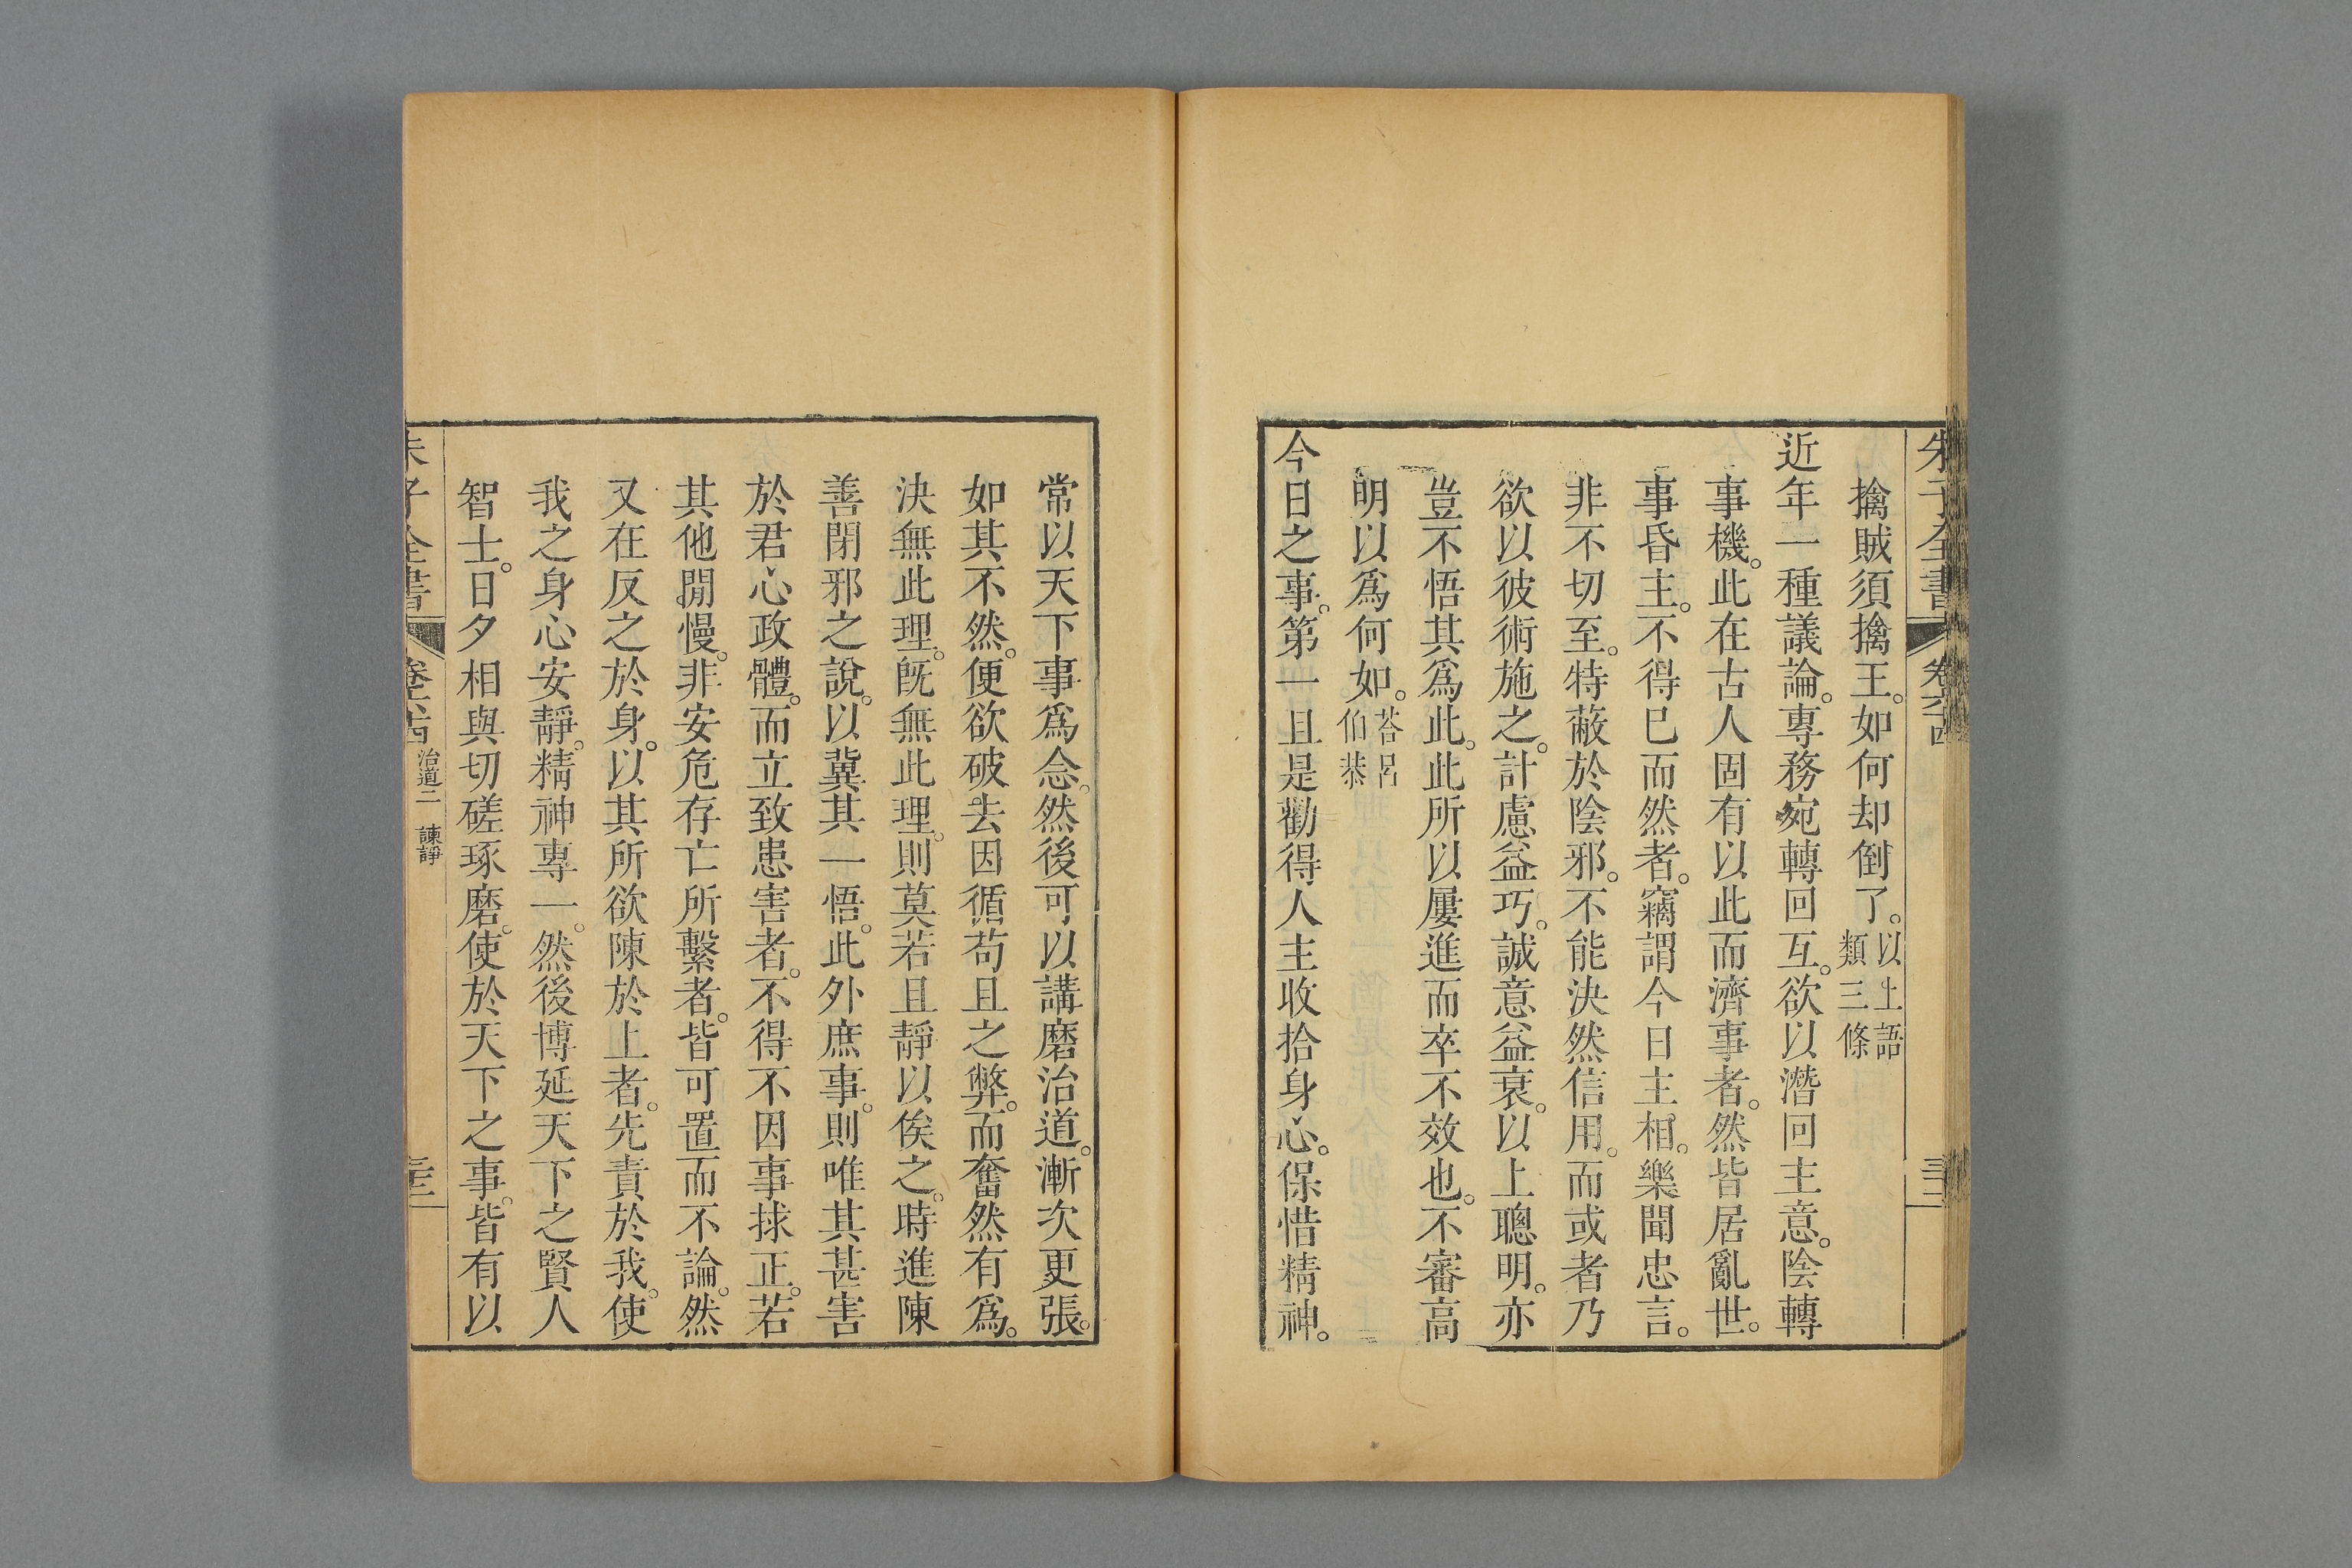 朱子全書 卷六十四
擒賊須擒王。如何却倒了。以上語類三條
近年一種議論。專務宛轉回互。欲以潛回主意。陰轉
事機。此在古人固有以此而濟事者。然皆居亂世。
事昏主。不得已而然者。竊謂今日主相。樂聞忠言。
非不切至。特蔽於陰邪。不能決然信用。而或者乃
欲以彼術施之。計慮益巧。誠意益衰。以上聰明。亦
豈不悟其爲此。此所以屢進而卒不效也。不審高
明以爲何如。荅呂伯恭
今日之事。第一且是勸得人主收拾身心。保惜精神。
常以天下事爲念。然後可以講磨治道。漸次更張。
如其不然。便欲破去因循苟且之弊。而奮然有爲。
決無此理。旣無此理。則莫若且靜以俟之。時進陳
善閉邪之說。以冀其一悟。此外庶事。則唯其甚害
於君心政體。而立致患害者。不得不因事捄正。若
其他閒慢。非安危存亡所繫者。皆可置而不論。然
又在反之於身。以其所欲陳於上者。先責於我。使
我之身心安靜。精神專一。然後博延天下之賢人
智士。日夕相與切磋琢磨。使於天下之事。皆有以
朱子全書 卷六十四 治道二 諫諍